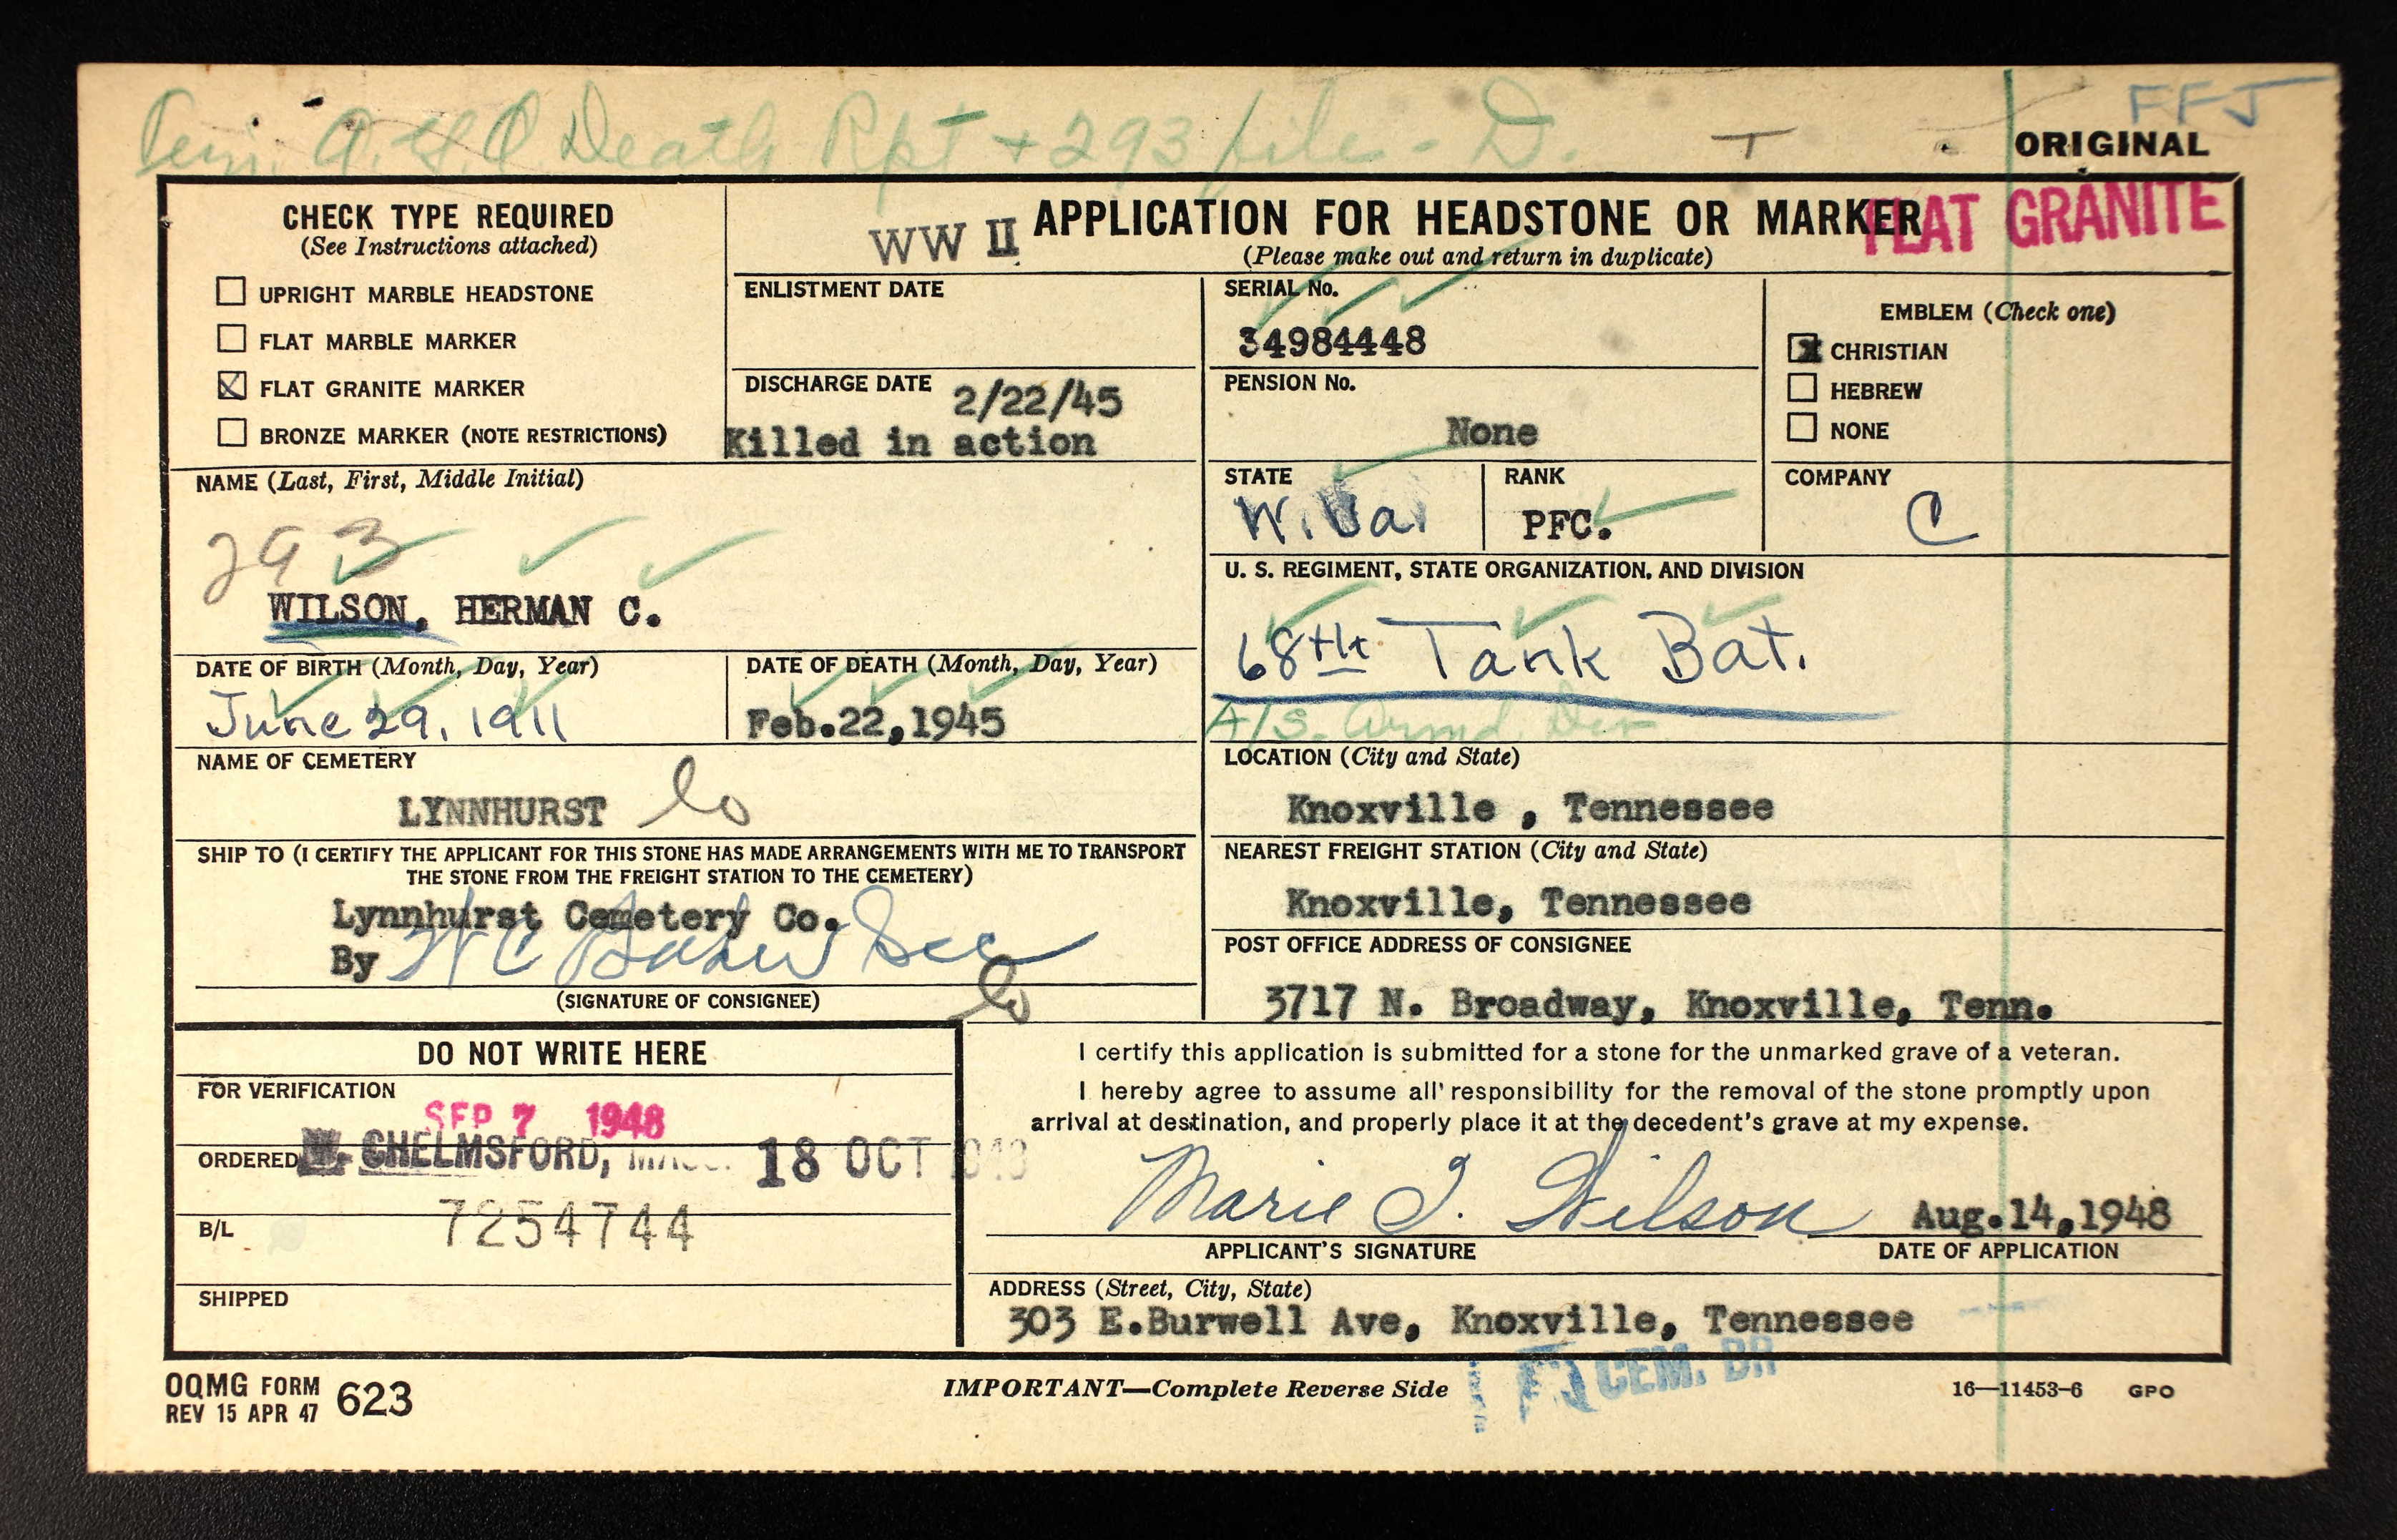 A.G.O. Death Rpt + 293 file - D.
FFJ
ORIGINAL
CHECK TYPE REQUIRED
(See Instructions attached)
UPRIGHT MARBLE HEADSTONE
FLAT MARBLE MARKER
FLAT GRANITE MARKER
BRONZE MARKER (NOTE RESTRICTIONS)
WW II APPLICATION FOR HEADSTONE OR MARKER
FLAT GRANITE
(Please make out and return in duplicate)
ENLISTMENT DATE
SERIAL No.
34984448
EMBLEM (Check one)
CHRISTIAN
HEBREW
NONE
DISCHARGE DATE 2/22/45
Killed in action
PENSION No.
None
NAME (Last, First, Middle Initial)
293
WILSON, HERMAN C.
STATE
W. Va.
RANK
PFC.
COMPANY
C
U. S. REGIMENT, STATE ORGANIZATION, AND DIVISION
68th Tank Bat.
DATE OF BIRTH (Month, Day, Year)
June 29, 1911
DATE OF DEATH (Month, Day, Year)
Feb.22,1945
NAME OF CEMETERY
LYNNHURST
LOCATION (City and State)
Knoxville , Tennessee
SHIP TO (I CERTIFY THE APPLICANT FOR THIS STONE HAS MADE ARRANGEMENTS WITH ME TO TRANSPORT
THE STONE FROM THE FREIGHT STATION TO THE CEMETERY)
Lynnhurst Cemetery Co.
By
(SIGNATURE OF CONSIGNEE)
NEAREST FREIGHT STATION (City and State)
Knoxville, Tennessee
POST OFFICE ADDRESS OF CONSIGNEE
3717 N. Broadway, Knoxville, Tenn.
DO NOT WRITE HERE
FOR VERIFICATION
SEP 7 1948
ORDERED W. CHELMSFORD, MASS. 18 OCT 1948
B/L 7254744
SHIPPED
I certify this application is submitted for a stone for the unmarked grave of a veteran.
I hereby agree to assume all responsibility for the removal of the stone promptly upon
arrival at destination, and properly place it at the decedent's grave at my expense.
Marie I. Wilson Aug.14,1948
APPLICANT'S SIGNATURE DATE OF APPLICATION
ADDRESS (Street, City, State)
303 E.Burwell Ave, Knoxville, Tennessee
OQMG FORM 623
REV 15 APR 47
IMPORTANT—Complete Reverse Side
CEM. BR
16—11453-6 GPO